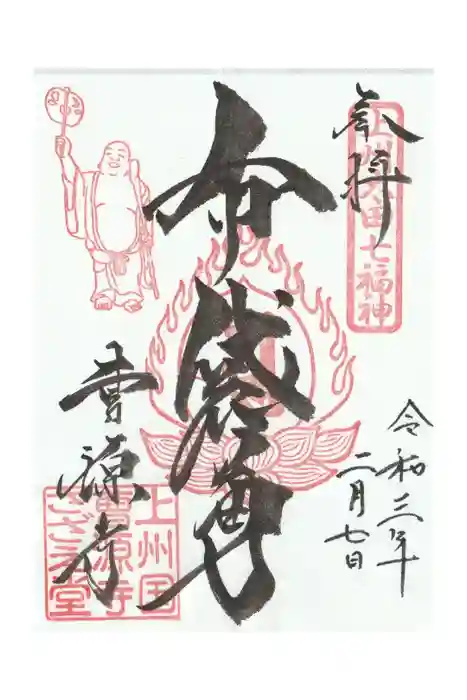 奉拝
上州太田七福神
布袋尊
令和三年
二月七日
曹源寺
上州国
曹源寺
さざえ堂